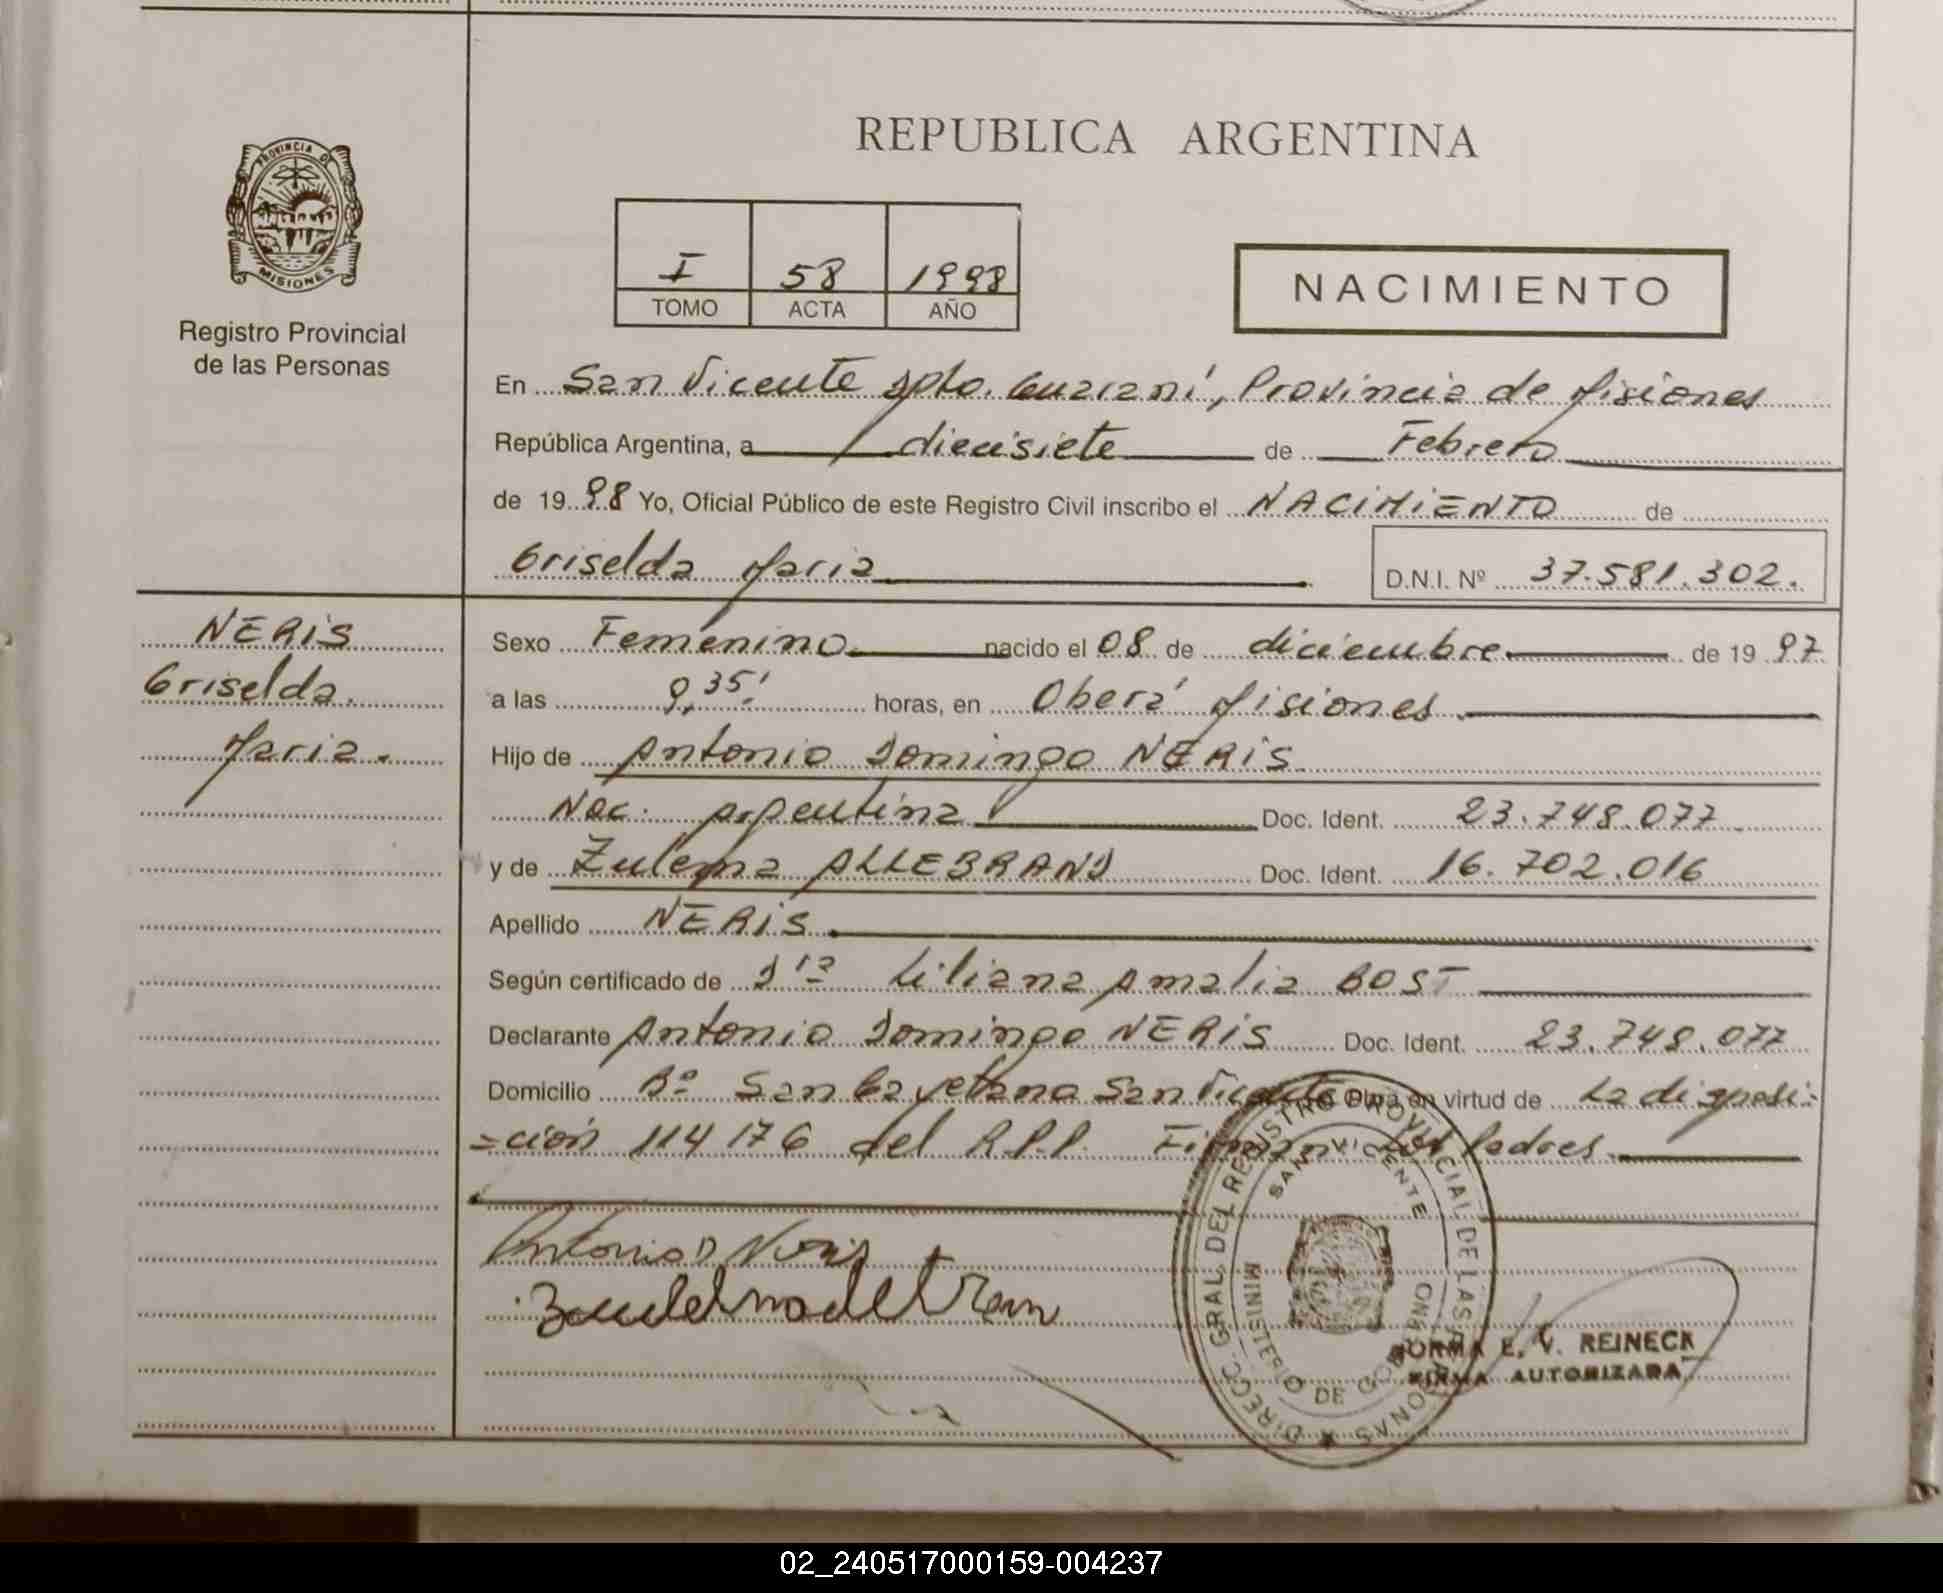 REPUBLICA ARGENTINA
PROVINCIA DE
MISIONES
Registro Provincial
de las Personas
I 58 1998
TOMO ACTA AÑO
NACIMIENTO
En San Vicente Dpto. Guaraní, Provincia de Misiones
República Argentina, a diecisiete de Febrero
de 1998 Yo, Oficial Público de este Registro Civil inscribo el NACIMIENTO de
Griselda Maria
D.N.I. Nº 37.581.302.
NERIS
Griselda
Maria.
Sexo Femenino nacido el 08 de diciembre de 1997
a las 9,35' horas, en Oberá Misiones
Hijo de Antonio Domingo NERIS
Nac. Argentina Doc. Ident. 23.748.077
y de Zulema ALLEBRAND Doc. Ident. 16.702.016
Apellido NERIS
Según certificado de Dra Liliana Amalia BOST
Declarante Antonio Domingo NERIS Doc. Ident. 23.748.077
Domicilio Bº San Cayetano San Vicente Obra en virtud de La disposi-
=ción 114176 del R.P.P. Firman los Padres
Antonio D Neris
DIRECC. GRAL. DEL REGISTRO PROVINCIAL DE LAS PERSONAS
SAN VICENTE
MINISTERIO DE GOBIERNO
NORMA E. V. REINECK
FIRMA AUTORIZADA
02_240517000159-004237